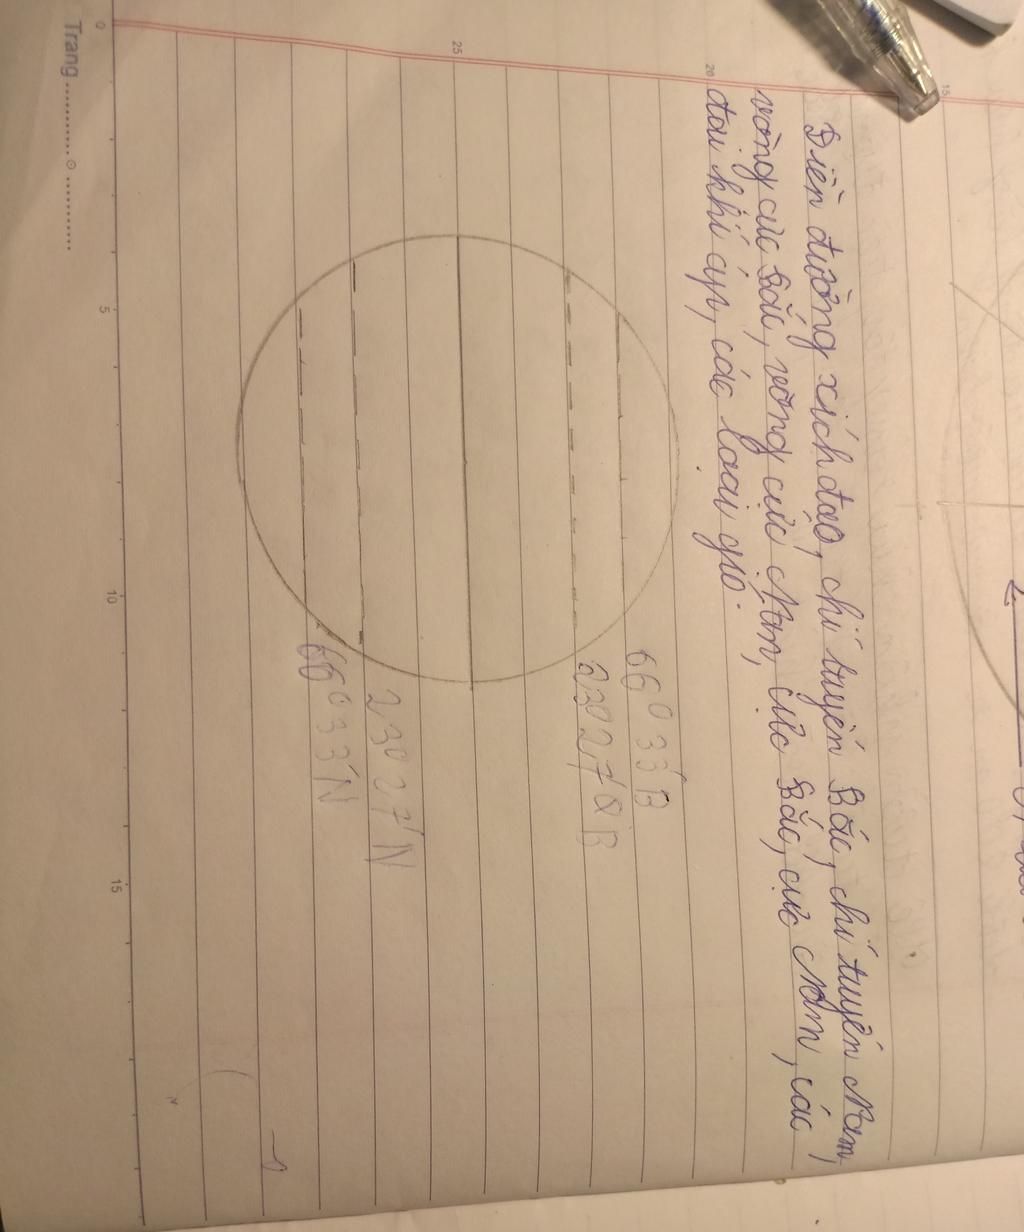 Điền đường xích đạo, chí tuyến Bắc, chí tuyến Nam,
vòng cực Bắc, vòng cực Nam, cực Bắc, cực Nam, các
đai khí áp, các loại gió.
66°33'B
23°27'B
23°27'N
66°33'N
Trang
0
5
10
15
15
20
25